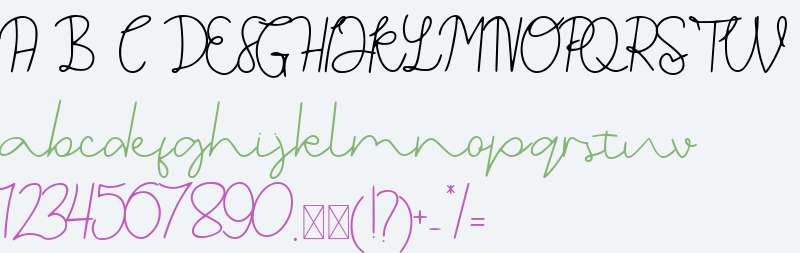 A B C DEFGHIJKLMNOPQRSTUV
abcdefghijklmnopqrstuv
1234567890.(!?)+-*/=